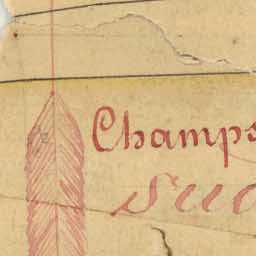 Champs
sud